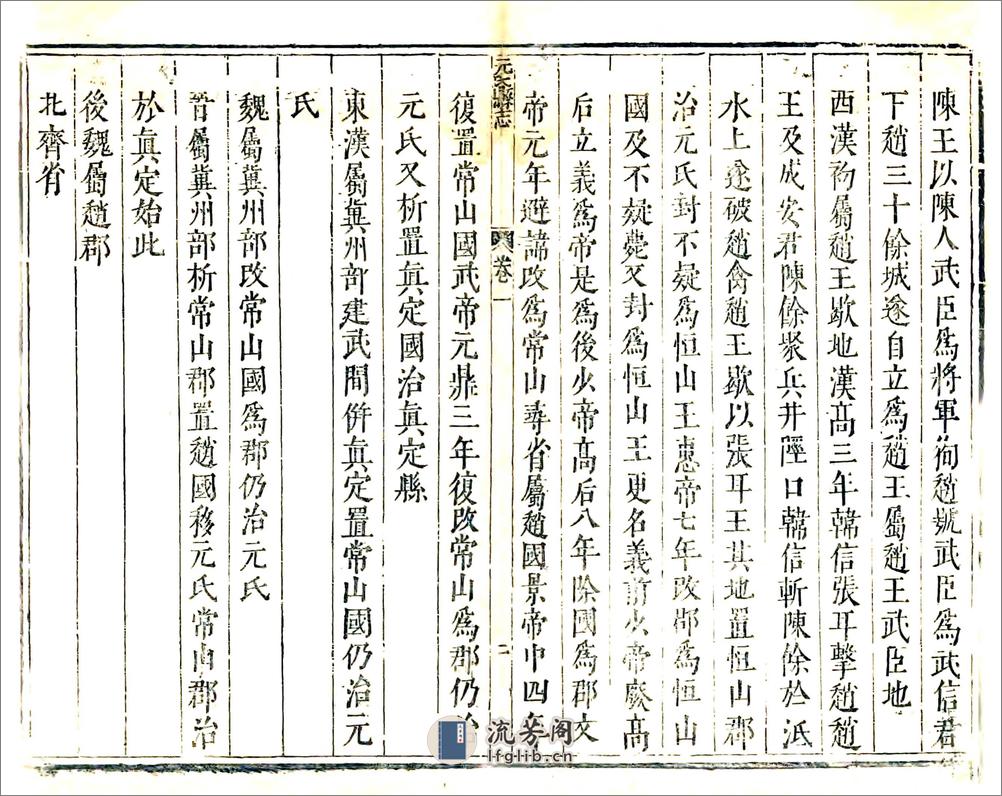 陳王以陳人武臣爲將軍徇趙號武臣爲武信君
下趙三十餘城遂自立爲趙王屬趙王武臣地
西漢初屬趙王歇地漢高三年韓信張耳擊趙趙
王及成安君陳餘聚兵井陘口韓信斬陳餘於泜
水上遂破趙禽趙王歇以張耳王其地置恒山郡
治元氏封不疑爲恒山王惠帝七年改郡爲恒山
國及不疑薨又封爲恒山王更名義前少帝廢高
后立義爲帝是爲後少帝高后八年除國爲郡文
帝元年避諱改爲常山尋省屬趙國景帝中四年
元氏縣志
卷一
二
復置常山國武帝元鼎三年復改常山爲郡仍治
元氏又析置真定國治真定縣
東漢屬冀州部建武間併真定置常山國仍治元
氏
魏屬冀州部改常山國爲郡仍治元氏
晉屬冀州部析常山郡置趙國移元氏常山郡治
於真定始此
後魏屬趙郡
北齊省
流芳阁
lfglib.com